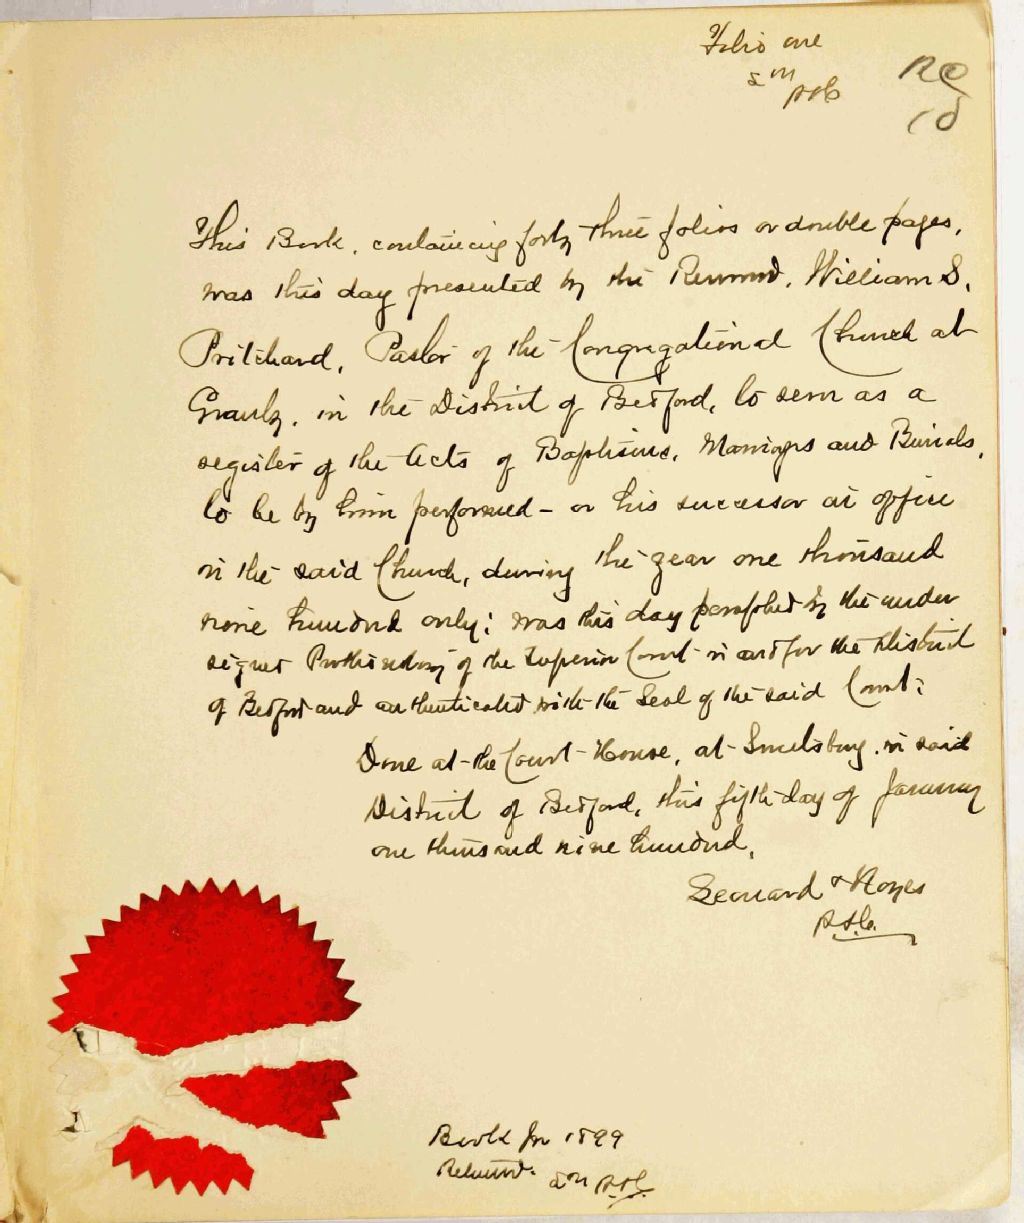 Folio one
L&N PSC
This Book, containing forty three folios or double pages,
was this day presented by the Reverend, William S.
Pritchard, Pastor of the Congregational Church at
Granby, in the District of Bedford, to serve as a
register of the Acts of Baptisms, Marriages and Burials,
to be by him performed - or his successor at office
in the said Church, during the year one thousand
nine hundred only; was this day paraphed by the under
signed Prothonotary of the Superior Court in and for the District
of Bedford and authenticated with the Seal of the said Court;
Done at the Court House, at Sweetsburg, in said
District of Bedford, this fifth day of January
one thousand nine hundred.
Leonard & Noyes
P.S.C.
Book for 1899
Returned. L&N P.S.C.